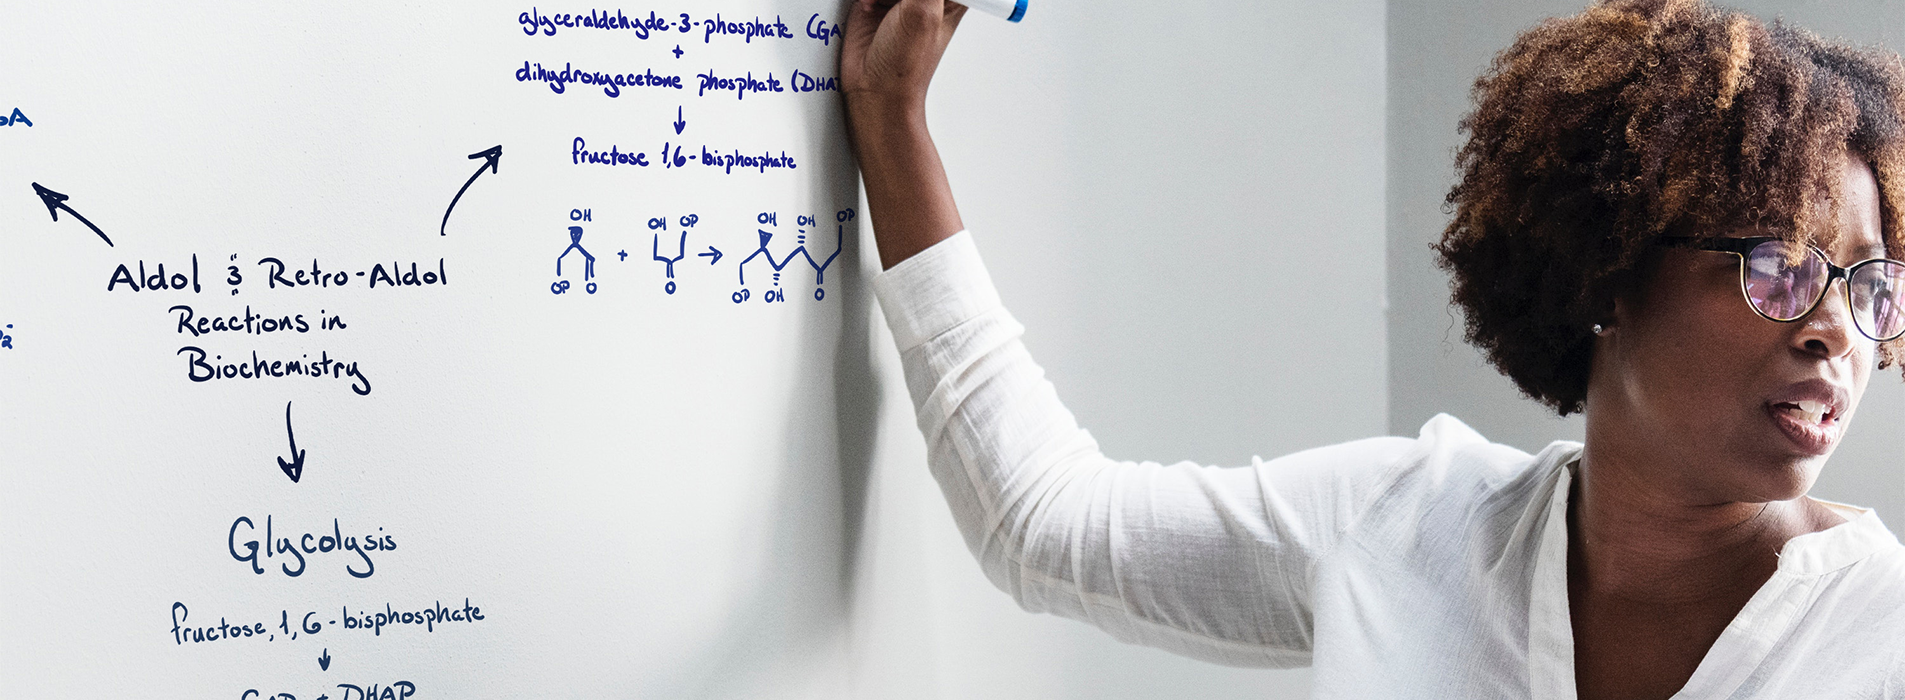 glyceraldehyde-3-phosphate (GA
+
dihydroxyacetone phosphate (DHA
↓
fructose 1,6-bisphosphate
OH
OP O
+
OH OP
O
→
OH OH OP
OP OH O
oA
Aldol & Retro-Aldol
Reactions in
Biochemistry
Glycolysis
fructose, 1,6-bisphosphate
↓
GAP + DHAP